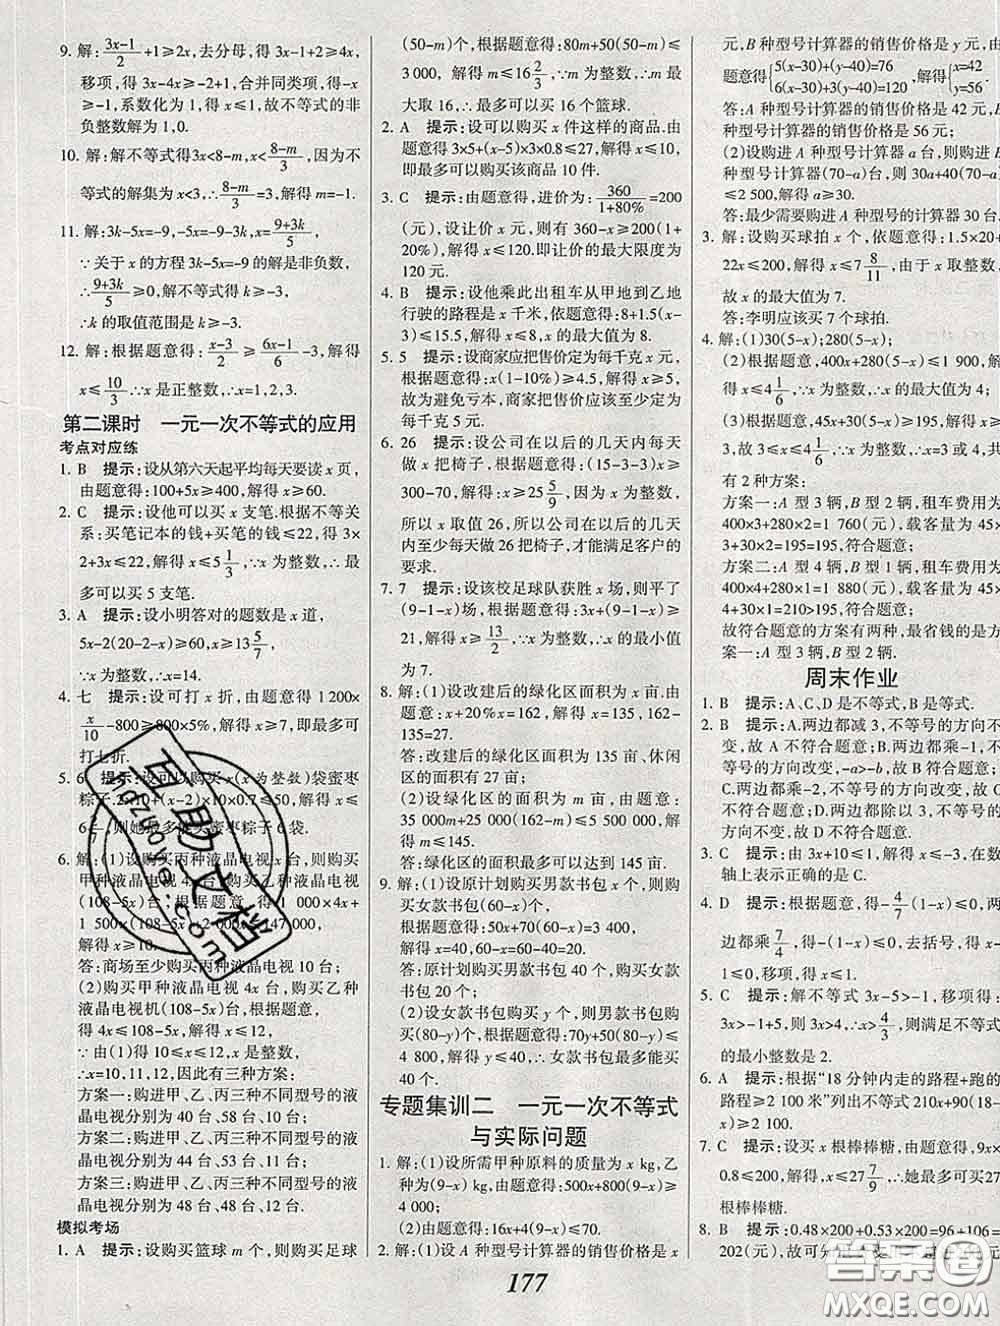 9. 解:(3x-1)/2+1≥2x,去分母,得 3x-1+2≥4x,
移项,得 3x-4x≥-2+1,合并同类项,得 -x≥
-1,系数化为 1,得 x≤1,故不等式的非
负整数解为 1,0.
10. 解:解不等式得3x<8-m,x<(8-m)/3,因为不
等式的解集为 x<3,∴(8-m)/3=3,解得 m=-1.
11. 解:3k-5x=-9,-5x=-9-3k,x=(9+3k)/5,
∵关于 x 的方程 3k-5x=-9 的解是非负数,
∴(9+3k)/5≥0,解不等式得 k≥-3,
∴k 的取值范围是 k≥-3.
12. 解:根据题意得:(x-3)/2≥(6x-1)/6-3,解得
x≤10/3.∵x 是正整数,∴x=1,2,3.
第二课时 一元一次不等式的应用
考点对应练
1. B 提示:设从第六天起平均每天要读 x 页,
由题意得:100+5x≥400,解得 x≥60.
2. C 提示:设他可以买 x 支笔.根据不等关
系:买笔记本的钱+买笔的钱≤22,得 3×
2+3x≤22,解得 x≤5 1/3,∵x 为整数,∴他最
多可以买 5 支笔.
3. A 提示:设小明答对的题数是 x 道,
5x-2(20-2-x)≥60,x≥13 5/7,
∵x 为整数,∴x=14.
4. 七 提示:设可打 x 折,由题意得 1200×
x/10-800≥800×5%,解得 x≥7,即最多可
打七折.
5. 6 提示:设可以购买 x(x 为整数)袋蜜枣
粽子.2×10+(x-2)×10×0.7≤50,解得 x≤
则她最多能买蜜枣粽子 6 袋.
6. 解:(1)设购买丙种液晶电视 x 台,则购买
甲种液晶电视 4x 台,购买乙种液晶电视
(108-5x)台,根据题意得:1 000×4x+
1 500×(108-5x)+2 000x≤147 000,
解得 x≥10.
答:商场至少购买丙种液晶电视 10 台;
(2)购买甲种液晶电视 4x 台,购买乙种
液晶电视(108-5x)台,根据题意,
得 4x≤108-5x,解得 x≤12,
由(1)得 10≤x≤12,∵x 为整数,
∴x=10,11,12,因此有三种方案:
方案一:购进甲、乙、丙三种不同型号的液
晶电视分别为 40 台、58 台、10 台;
方案二:购进甲、乙、丙三种不同型号的液
晶电视分别为 44 台、53 台、11 台;
方案三:购进甲、乙、丙三种不同型号的液
晶电视分别为 48 台、48 台、12 台.
模拟考场
1. A 提示:设购买篮球 m 个,则购买足球
(50-m)个,根据题意得:80m+50(50-m)≤
3 000,解得 m≤16 2/3,∵m 为整数,∴m 最
大取 16,∴最多可以买 16 个篮球.
2. A 提示:设可以购买 x 件这样的商品.由
题意得 3×5+(x-5)×3×0.8≤27,解得 x≤10,
即最多可以购买该商品 10 件.
3. C 提示:由题意得,进价为:360/(1+80%)=200
(元),设让价 x 元,则有 360-x≥200(1+
20%),解得 x≤120.即让价的最大限度为
120 元.
4. B 提示:设他乘此出租车从甲地到乙地
行驶的路程是 x 千米,依题意得:8+1.5(x-
3)≤15.5,解得 x≤8,即 x 的最大值为 8.
5. 5 提示:设商家应把售价定为每千克 x 元.
根据题意得:x(1-10%)≥4.5,解得 x≥5.
故为避免亏本,商家把售价应该至少定为
每千克 5 元.
6. 26 提示:设公司在以后的几天内每天
做 x 把椅子,依题意得:(15-3-3)x≥
300-70,解得:x≥25 5/9,因为 x 为整数,
所以 x 取值 26,所以公司在以后的几天内
至少每天做 26 把椅子,才能满足客户的
要求.
7. 7 提示:设该校足球队获胜 x 场,则平了
(9-1-x)场,根据题意得:3x+(9-1-x)≥
21,解得:x≥13/2,∵x 为整数,∴x 的最小值
为 7.
8. 解:(1)设改建后的绿化区面积为 x 亩.由
题意:x+20%x=162,解得 x=135,162-
135=27.
答:改建后的绿化区面积为 135 亩,休闲
区面积为 27 亩;
(2)设绿化区的面积为 m 亩,由题意:
35 000m+25 000(162-m)≤5 500 000,解
得 m≤145.
答:绿化区的面积最多可以达到 145 亩.
9. 解:(1)设原计划购买男款书包 x 个,则
购买女款书包(60-x)个,
根据题意得:50x+70(60-x)=3 400,
解得 x=40,60-x=60-40=20.
答:原计划购买男款书包 40 个,购买女款
书包 20 个;
(2)设女款书包购买 y 个,则男款书包
购买(80-y)个,根据题意得:70y+50(80-y)≤
4 800,解得 y≤40,∴女款书包最多购买
40 个.
专题集训二 一元一次不等式
与实际问题
1. 解:(1)设所需甲种原料的质量为 x kg,乙
种为(9-x) kg,由题意得:500x+800(9-x)
≥
(2)由题意得:16x+4(9-x)≤70.
2. 解:(1)设 A 种型号计算器的销售价格是 x
元,B 种型号计算器的销售价格是 y 元,由
题意得{5(x-30)+(y-40)=76 6(x-30)+3(y-40)=120,解得{x=42 y=56.
答:A 种型号计算器的销售价格是 42 元,B
种型号计算器的销售价格是 56 元;
(2)设购进 A 种型号计算器 a 台,则购进 B
种型号计算器(70-a)台,则 30a+40(70-a)
≤2 500,解得 a≥30.
答:最少需要购进 A 种型号的计算器 30 台.
3. 解:设购买球拍 x 个,依题意得:1.5×20+
22x≤200,解得 x≤7 8/11,由于 x 取整数,
故 x 的最大值为 7.
答:李明应该买 7 个球拍.
4. 解:(1)30(5-x);280(5-x);
(2)根据题意,400x+280(5-x)≤1 900,解
得 x≤4 1/6,∵x 为整数,∴x 的最大值为 4;
(3)根据题意,45x+30(5-x)≥
3,故 3≤x≤4 1/6,∵x 为整数,∴x=3 或 4,共
有 2 种方案:
方案一:A 型 3 辆,B 型 2 辆,租车费用为
400×3+280×2=1 760(元),载客量为 45×
3+30×2=195=195,符合题意;
方案二:A 型 4 辆,B 型 1 辆,租车费用为
400×4+280×1=1 880(元),载客量为 45×
4+30×1=210>195,符合题意;
故符合题意的方案有两种,最省钱的是方
案一:A 型 3 辆,B 型 2 辆.
周末作业
1. B 提示:A、C、D 是不等式,B 是等式.
2. B 提示:A.两边都减 3,不等号的方向不
变,故 A 不符合题意;B.两边都乘-1,不
等号的方向改变,-a>-b,故 B 符合题意;
C.两边都乘-2,不等号的方向改变,故 C
不符合题意;D.两边都除以 3,不等号的
方向不变.故 D 不符合题意.
3. C 提示:由 3x+10≤1,解得 x≤-3,在数
轴上表示正确的是 C.
4. D 提示:根据题意,得-4/7(1-x)≤0,两
边都乘 7/4,得-(1-x)≤0,去括号,得-
1≤0,移项,得 x≤1.
5. C 提示:解不等式 3x-5>-1,移项得:
3x>-1+5,则 3x>4,∴x>4/3,则满足不等式
的最小整数是 2.
6. A 提示:根据“18 分钟内走的路程+跑的
路程≥2 100 米”列出不等式 210x+90(18-
x)≥2 100.
7. C 提示:设买 x 根棒棒糖,由题意得,9x×
0.8≤200,解得,x≤27 7/9,∴她最多可买27
根棒棒糖.
8. B 提示:0.48×200+0.53×200=96+106=
202(元),故可
177
百助文档
baizhuwk.com
答案圈
MXQE.COM